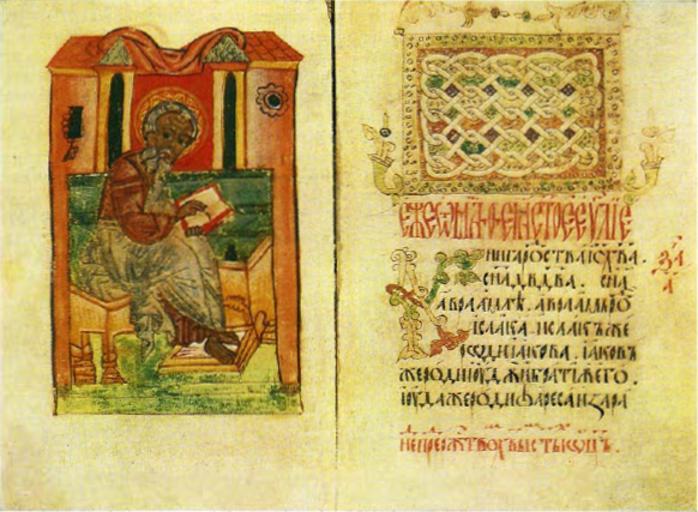 ЕЖЕ Ѿ МАѲ҃ЕА СТОЕ ЕѴ҃ЛІЕ
Книга рост҃ва іс҃ х҃ва .
сн҃а дв҃два . сн҃а
авраамлѣ . авраамь ро
исаака . исаакъ же
роди іакова . іаковъ
же роди іюдѫ и братіѫ его .
іюда же роди фареса и зара
За҃
а҃